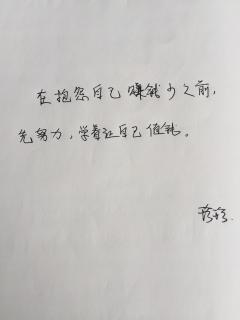 在抱怨自己赚钱少之前，
先努力，学着让自己值钱。
珍珍.